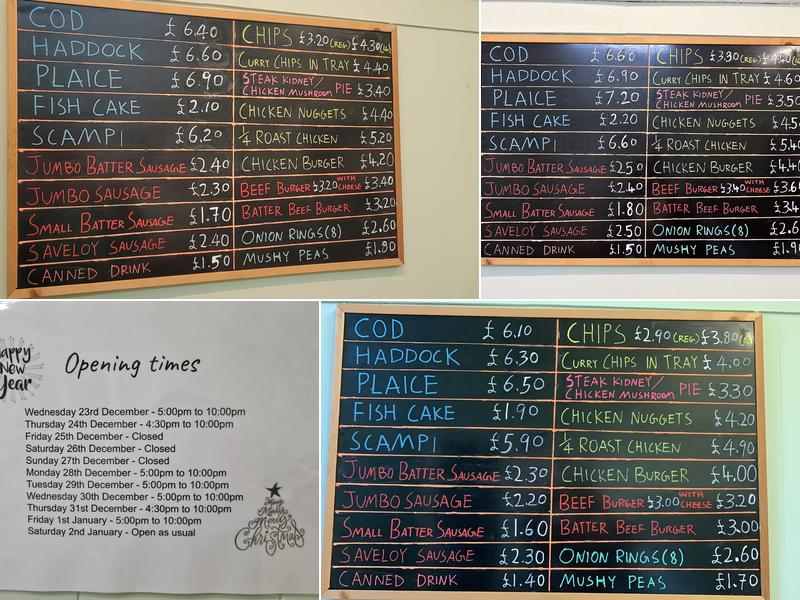 COD £6.40
HADDOCK £6.60
PLAICE £6.90
FISH CAKE £2.10
SCAMPI £6.20
JUMBO BATTER SAUSAGE £2.40
JUMBO SAUSAGE £2.30
SMALL BATTER SAUSAGE £1.70
SAVELOY SAUSAGE £2.40
CANNED DRINK £1.50
CHIPS £3.20 (REG) £4.30 (LG)
CURRY CHIPS IN TRAY £4.40
STEAK KIDNEY/
CHICKEN MUSHROOM PIE £3.40
CHICKEN NUGGETS £4.40
1/4 ROAST CHICKEN £5.20
CHICKEN BURGER £4.20
BEEF BURGER £3.20 WITH CHEESE £3.40
BATTER BEEF BURGER £3.20
ONION RINGS (8) £2.60
MUSHY PEAS £1.80
COD £6.60
HADDOCK £6.90
PLAICE £7.20
FISH CAKE £2.20
SCAMPI £6.60
JUMBO BATTER SAUSAGE £2.50
JUMBO SAUSAGE £2.40
SMALL BATTER SAUSAGE £1.80
SAVELOY SAUSAGE £2.50
CANNED DRINK £1.50
CHIPS £3.30 (REG)
CURRY CHIPS IN TRAY £4.60
STEAK KIDNEY/
CHICKEN MUSHROOM PIE £3.50
CHICKEN NUGGETS
1/4 ROAST CHICKEN
CHICKEN BURGER
BEEF BURGER £3.40 WITH CHEESE
BATTER BEEF BURGER
ONION RINGS (8)
MUSHY PEAS
Happy
New
Year
Opening times
Wednesday 23rd December - 5:00pm to 10:00pm
Thursday 24th December - 4:30pm to 10:00pm
Friday 25th December - Closed
Saturday 26th December - Closed
Sunday 27th December - Closed
Monday 28th December - 5:00pm to 10:00pm
Tuesday 29th December - 5:00pm to 10:00pm
Wednesday 30th December - 5:00pm to 10:00pm
Thursday 31st December - 4:30pm to 10:00pm
Friday 1st January - 5:00pm to 10:00pm
Saturday 2nd January - Open as usual
Merry
Christmas
COD £6.10
HADDOCK £6.30
PLAICE £6.50
FISH CAKE £1.90
SCAMPI £5.90
JUMBO BATTER SAUSAGE £2.30
JUMBO SAUSAGE £2.20
SMALL BATTER SAUSAGE £1.60
SAVELOY SAUSAGE £2.30
CANNED DRINK £1.40
CHIPS £2.90 (REG) £3.80 (LG)
CURRY CHIPS IN TRAY £4.00
STEAK KIDNEY/
CHICKEN MUSHROOM PIE £3.30
CHICKEN NUGGETS £4.20
1/4 ROAST CHICKEN £4.90
CHICKEN BURGER £4.00
BEEF BURGER £3.00 WITH CHEESE £3.20
BATTER BEEF BURGER £3.00
ONION RINGS (8) £2.60
MUSHY PEAS £1.70